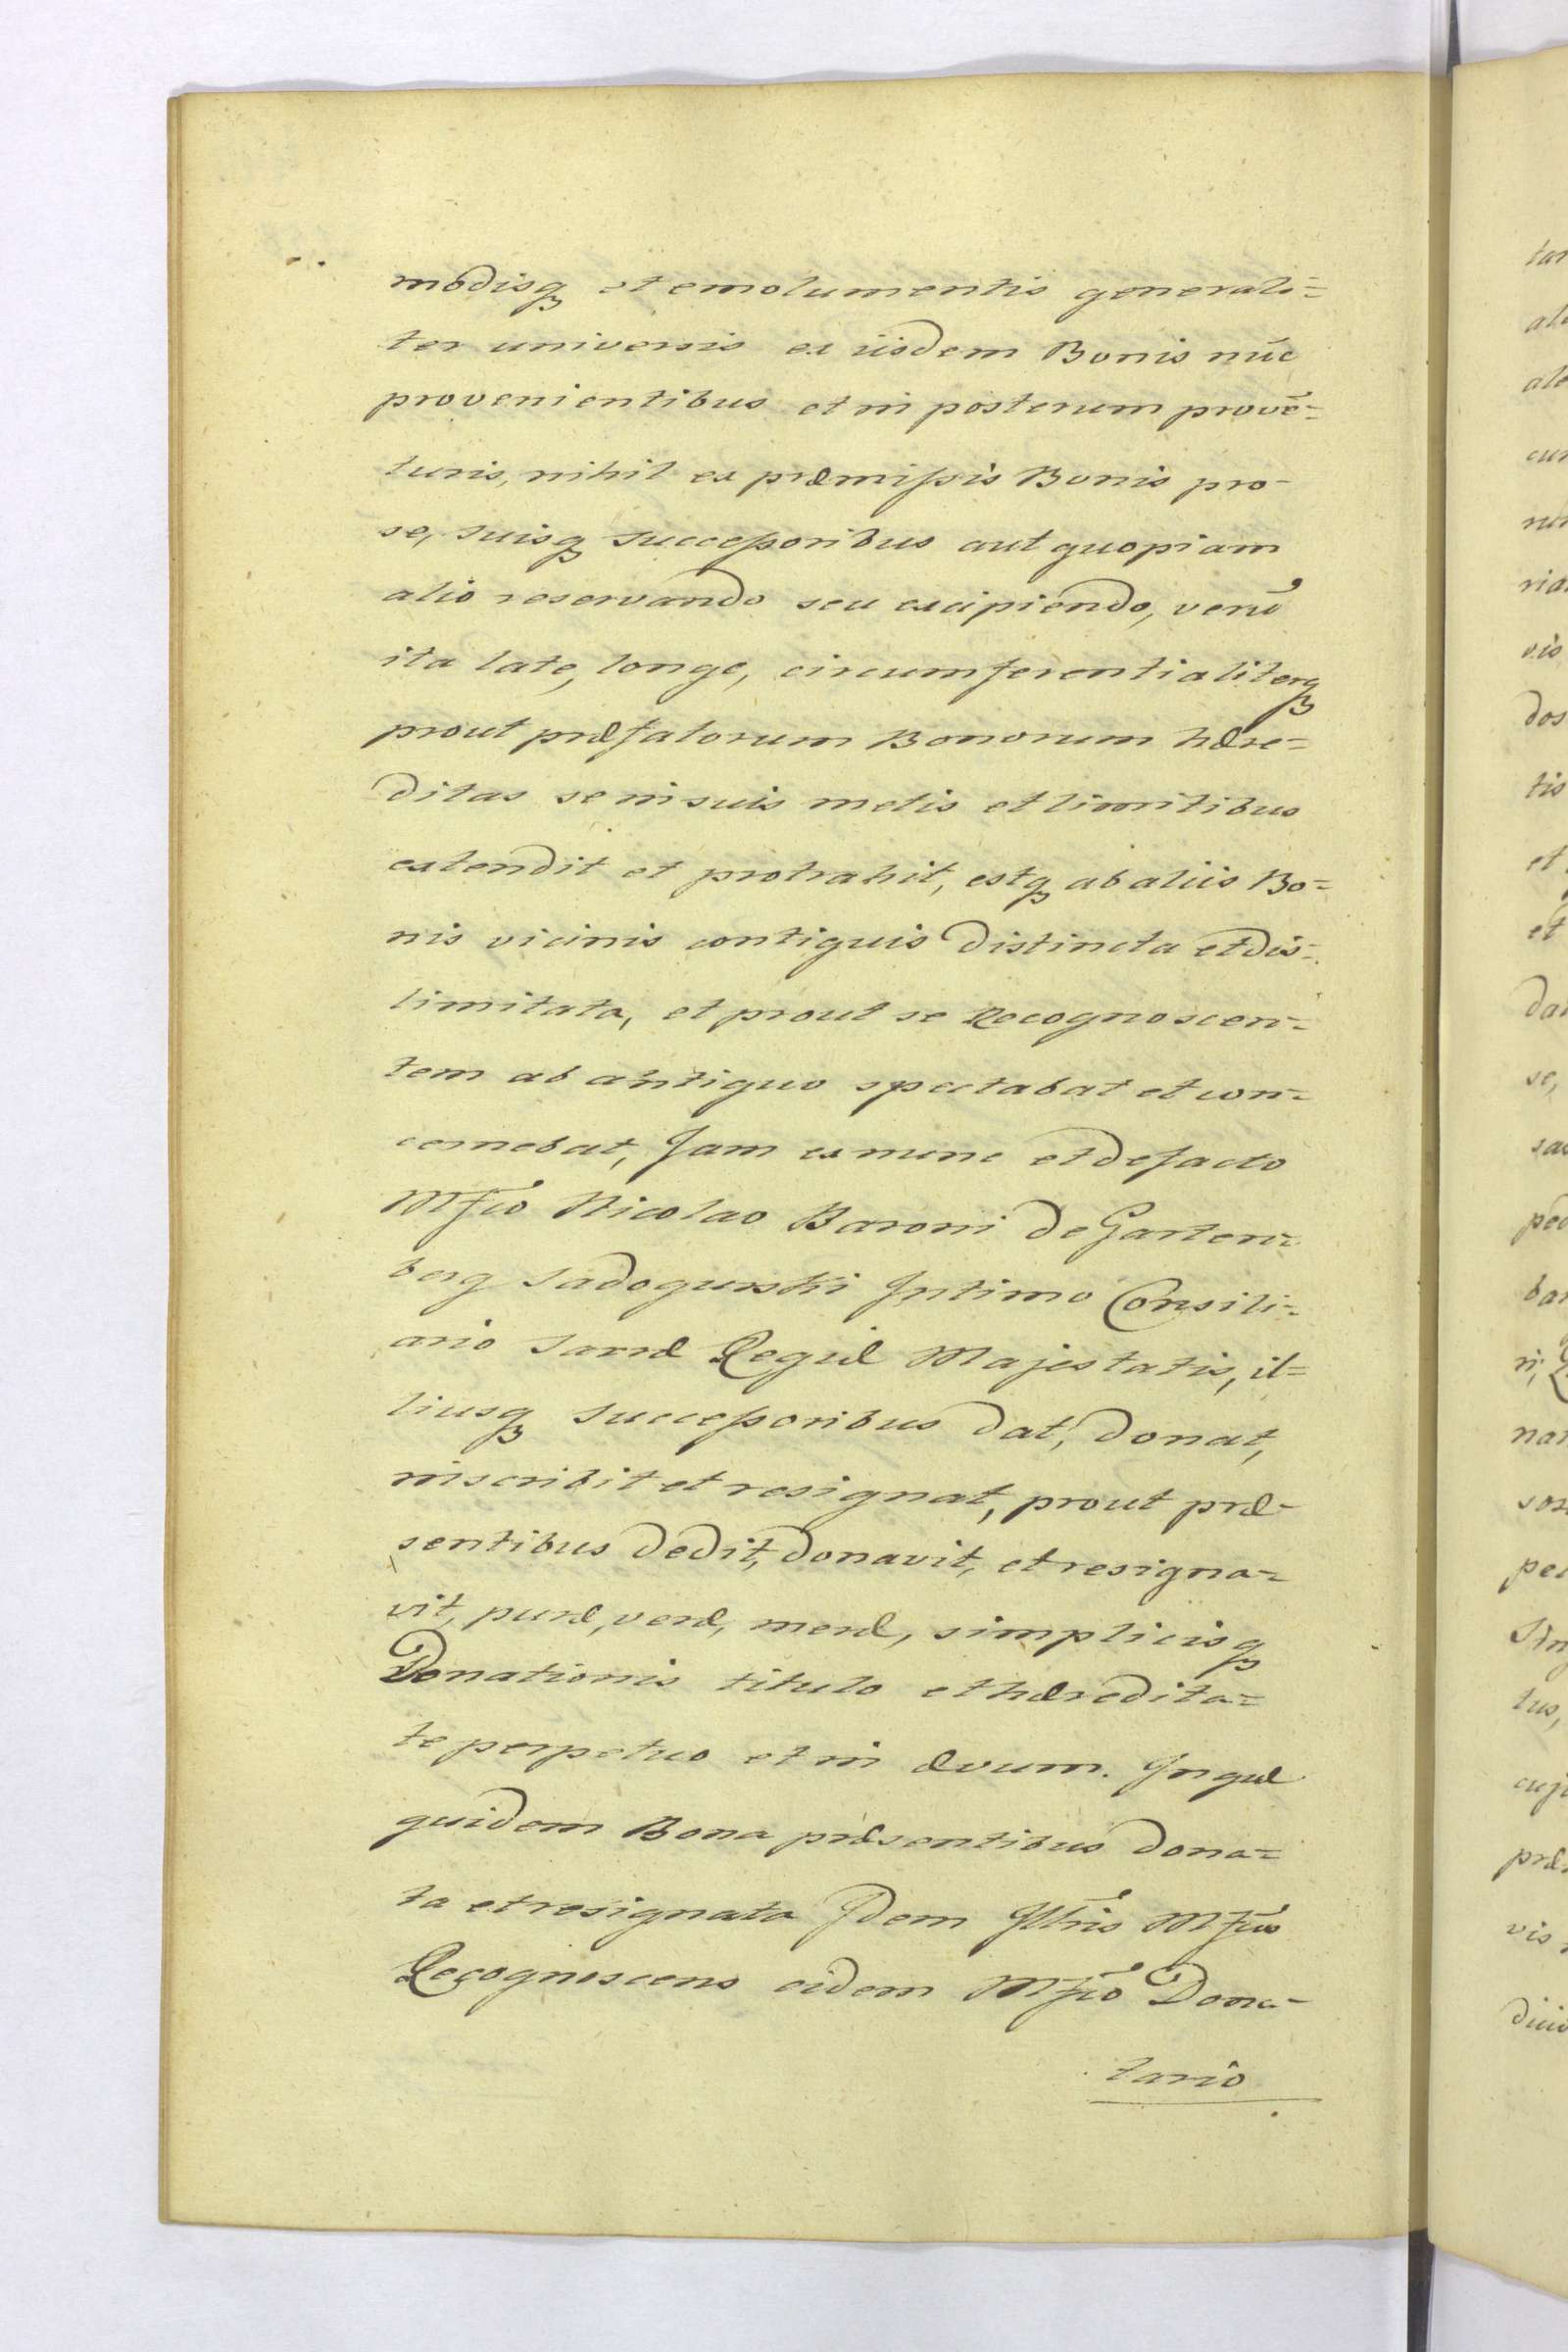 modisq̃ et emolumentis generali=
ter universis ex iisdem Bonis nũc
provenientibus et in posterum provẽ=
turis, nihil ex præmissis Bonis pro
se, suisq̃ successoribus aut quopiam
alio reservando seu excipiendo, verũ
ita late, longe, circumferentialiterq̃
prout præfatorum Bonorum hære=
ditas se in suis metis et limitibus
extendit et protrahit, estq̃ ab aliis Bo=
nis vicinis contiguis distincta et dis=
limitata, et prout se Recognoscen=
tem ab antiquo spectabat et con=
cernebat, Jam ex nunc et de facto
Mfco Nicolao Baroni de Garten=
berg Sadogurski Intimo Consili=
ario Sacræ Regiæ Majestatis, il=
liusq̃ successoribus dat, donat,
inscribit et resignat, prout præ-
sentibus dedit, donavit, et resigna=
vit, puræ, veræ, meræ, simplicisq̃
Donationis titulo et hæredita=
te perpetuo et in ævum. In quæ
quidem Bona præsentibus dona=
ta et resignata Idem Illris Mfcus
Recognoscens eidem Mfco Dona-
tario
tar
ali
ale
cur
ria
vis
dos
tis
et
et
dar
se,
sac
pec
bar
ri,
nar
sor
per
Sin
tus,
cuj
præ
vis
dicio